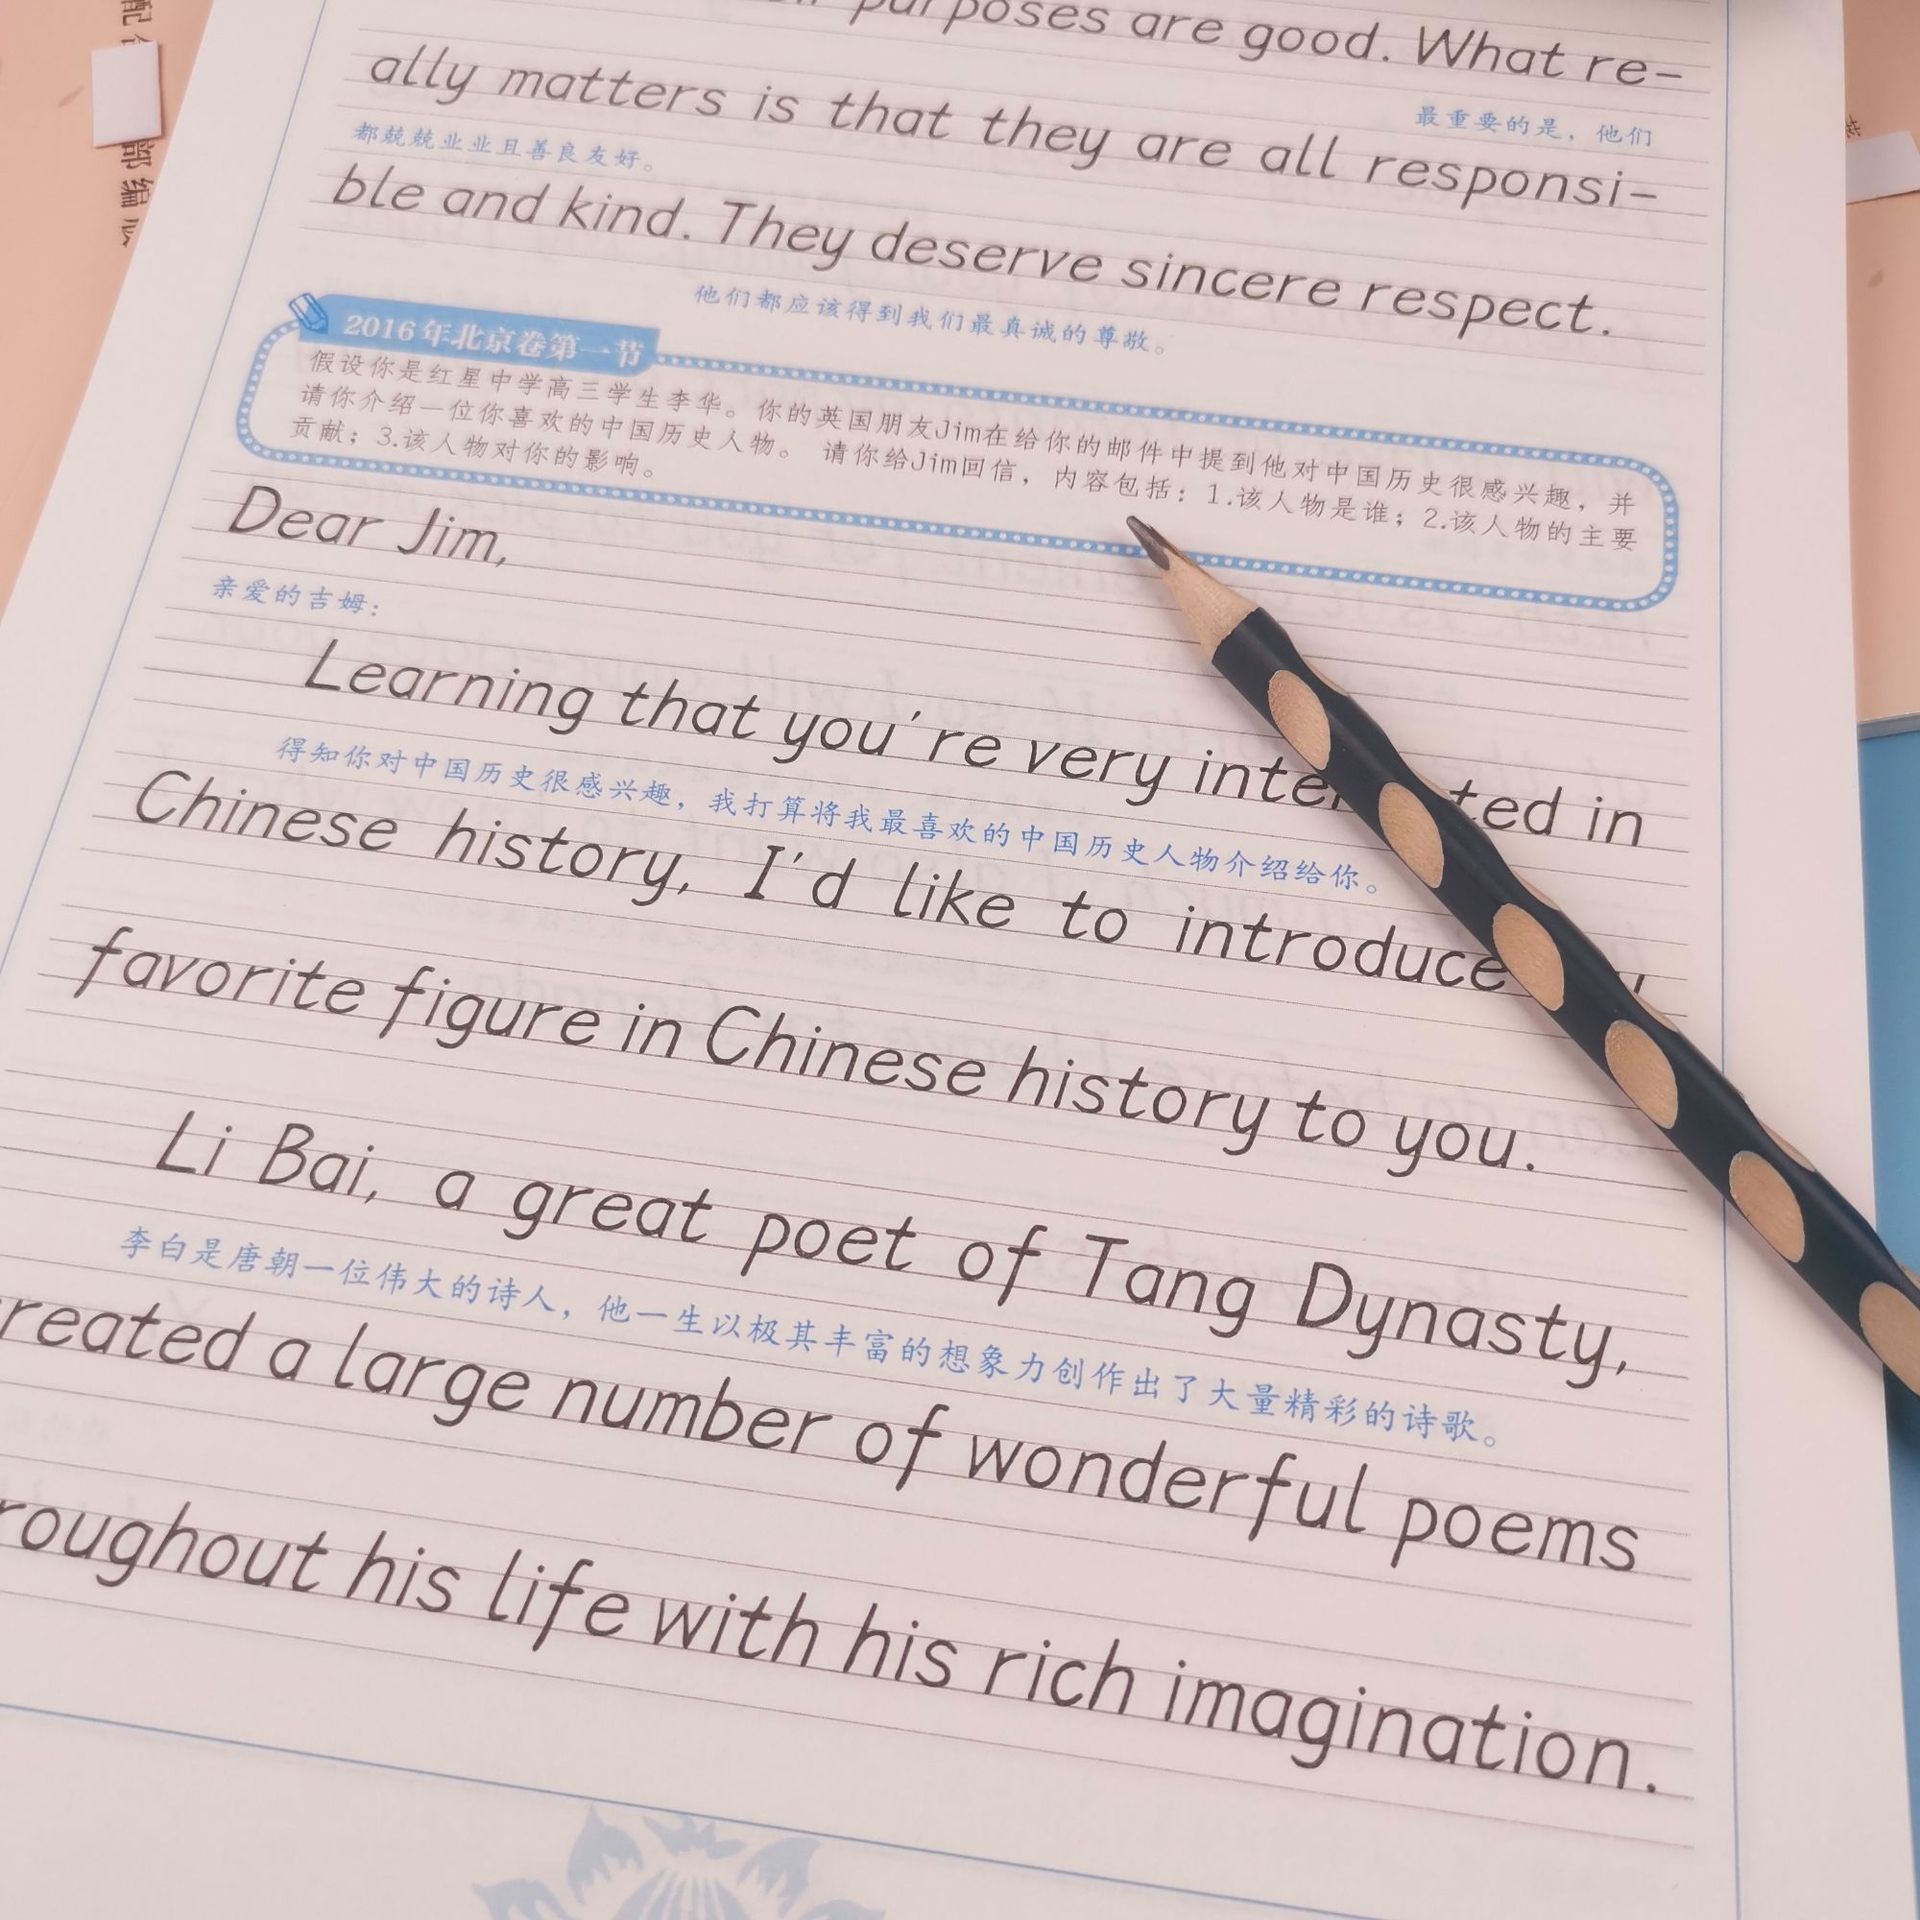 purposes are good. What re-
最重要的是，他们
ally matters is that they are all responsi-
都兢兢业业且善良友好。
ble and kind. They deserve sincere respect.
他们都应该得到我们最真诚的尊敬。
2016年北京卷第一节
假设你是红星中学高三学生李华。你的英国朋友Jim在给你的邮件中提到他对中国历史很感兴趣，并
请你介绍一位你喜欢的中国历史人物。 请你给Jim回信，内容包括：1.该人物是谁；2.该人物的主要
贡献；3.该人物对你的影响。
Dear Jim,
亲爱的吉姆：
Learning that you're very inte ted in
得知你对中国历史很感兴趣，我打算将我最喜欢的中国历史人物介绍给你。
Chinese history, I'd like to introduce
favorite figure in Chinese history to you.
Li Bai, a great poet of Tang Dynasty,
李白是唐朝一位伟大的诗人，他一生以极其丰富的想象力创作出了大量精彩的诗歌。
reated a large number of wonderful poems
roughout his life with his rich imagination.
部编